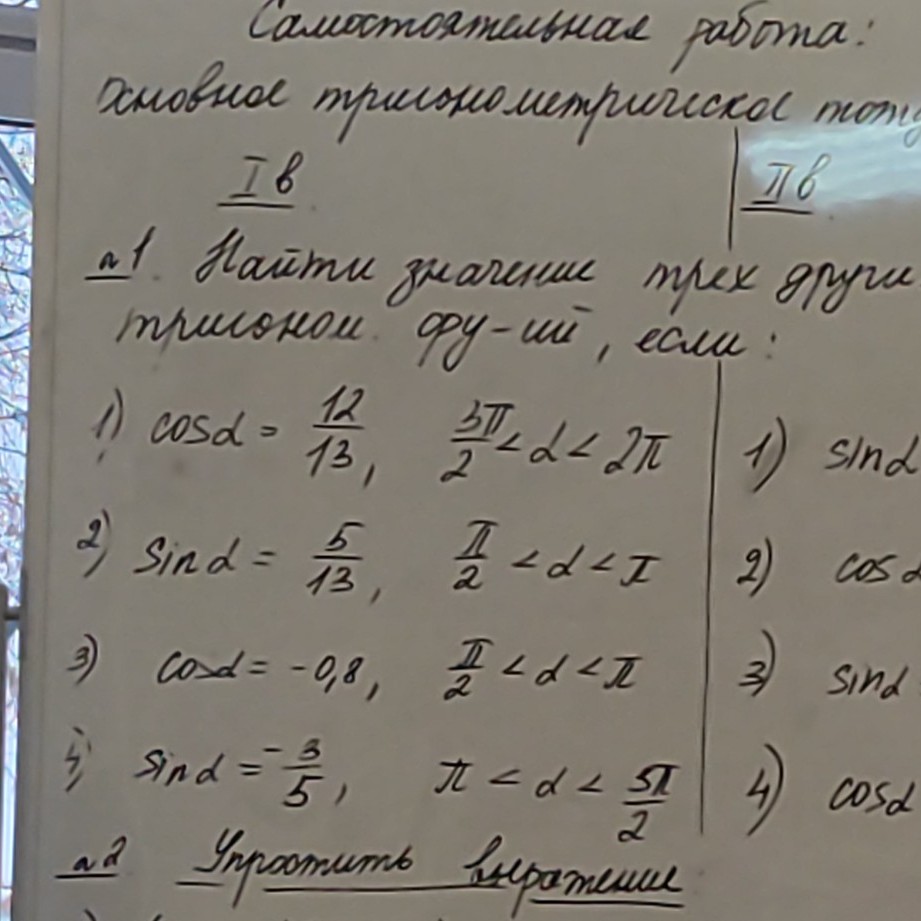 Самостоятельная работа:
основное тригонометрическое
I в
II в
№1. Найти значение трех
тригоном. фу-ий, если:
1) cosα = 12/13, 3π/2 < α < 2π
1) sinα
2) sinα = 5/13, π/2 < α < π
2) cosα
3) cosα = -0,8, π/2 < α < π
3) sinα
4) sinα = -3/5, π < α < 3π/2
4) cosα
№2 Упростить выражение